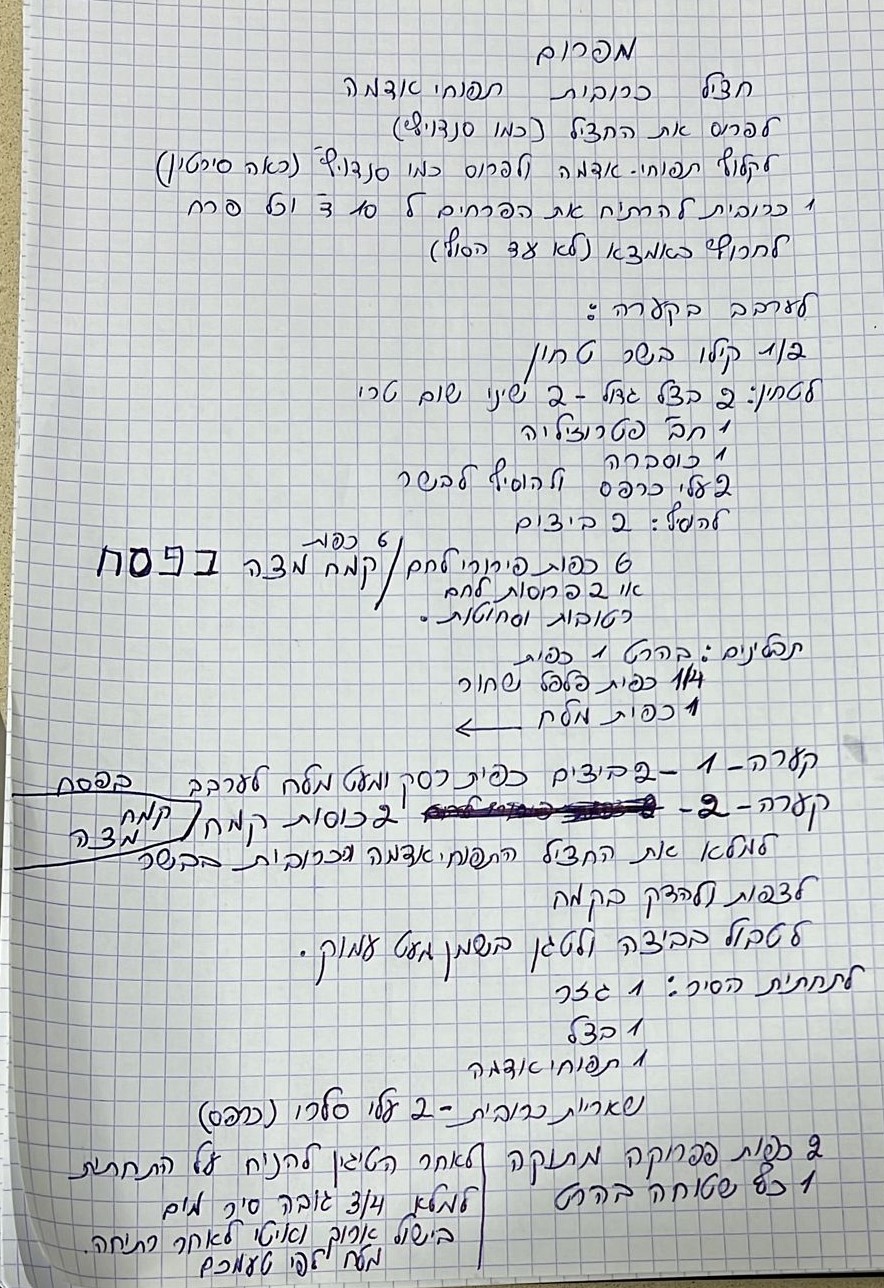 מפרום
חציל כרובית תפוחי אדמה
לפרוס את החציל (כמו סנדויץ')
לקלוף תפוחי-אדמה ולפרוס כמו סנדויץ' (ראה סירטון)
1 כרובית להרתיח את הפרחים ל 10 ד' וכל פרח
לחרוץ באמצא (לא עד הסוף)
לערבב בקערה:
1/2 קילו בשר טחון
לטחון: 2 בצל גדול - 2 שיני שום טרי
1 חב' פטרוזיליה
1 כוסברה
2 עלי כרפס ולהוסיף לבשר
להוסיף: 2 ביצים
6 כפות פירורי לחם / 6 כפות קמח מצה בפסח
או 2 פרוסות לחם
רטובות וסחוטות.
תבלינים: בהרט 1 כפית
1/4 כפית פלפל שחור
1 כפית מלח ←
קערה - 1 - 2 ביצים כפית רסק ומעט מלח לערבב בפסח
קערה - 2 - 2 כוסות קמח / קמח מצה
למלא את החציל התפוחי אדמה וכרובית בבשר
לצפות ולהדק בקמח
לטבול בביצה ולטגן בשמן מעט עמוק.
לתחתית הסיר: 1 גזר
1 בצל
1 תפוחי אדמה
שאריות כרובית - 2 עלי סלרי (כרפס)
2 כפות פפרוקה מתוקה
1 כף שטוחה בהרט
לאחר הטיגון להניח על התחתית
למלא 3/4 גובה סיר מים
בישול ארוך ואיטי לאחר רתיחה.
מלח לפי טעמכם